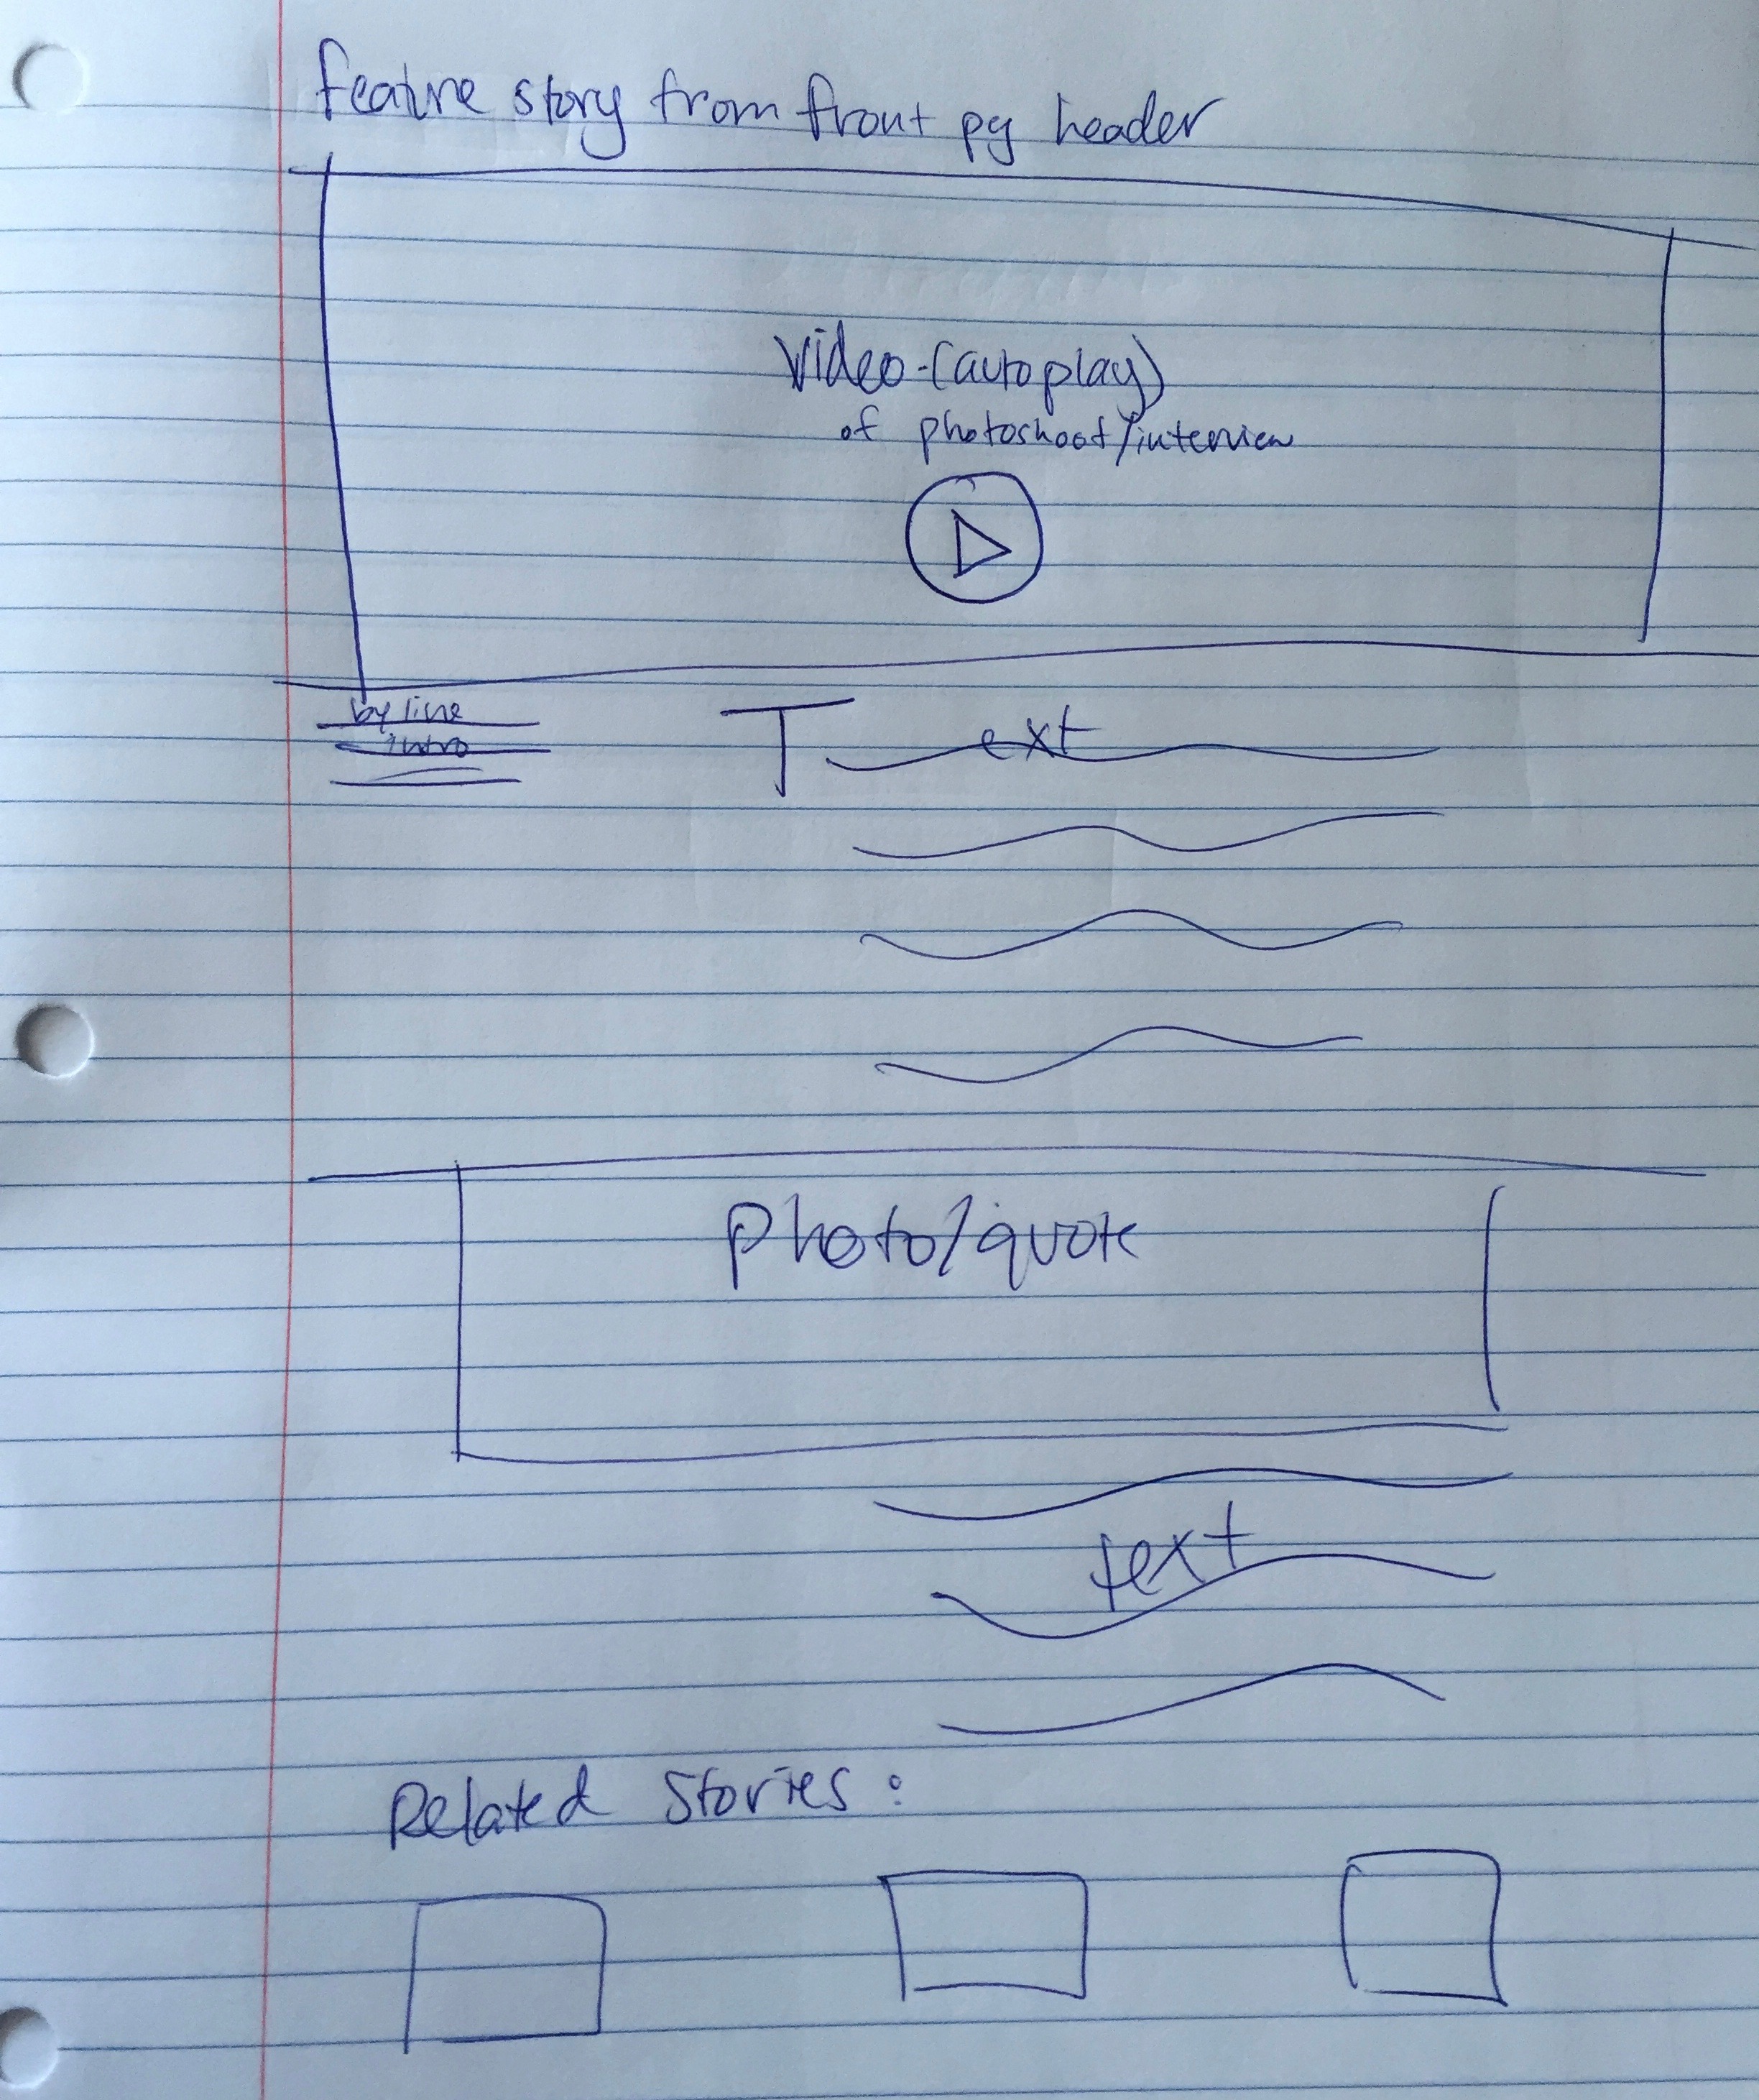 feature story from front pg header
Video-(autoplay)
of photoshoot/interview
by line
intro
Text
Photo/quote
text
Related Stories: